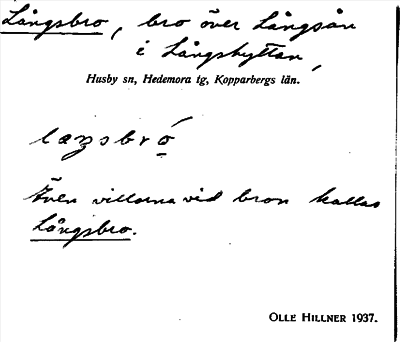 Långsbro, bro över Långsån
i Långshyttan,
Husby sn, Hedemora tg, Kopparbergs län.
Även villorna vid bron kallas
Långsbro.
OLLE HILLNER 1937.